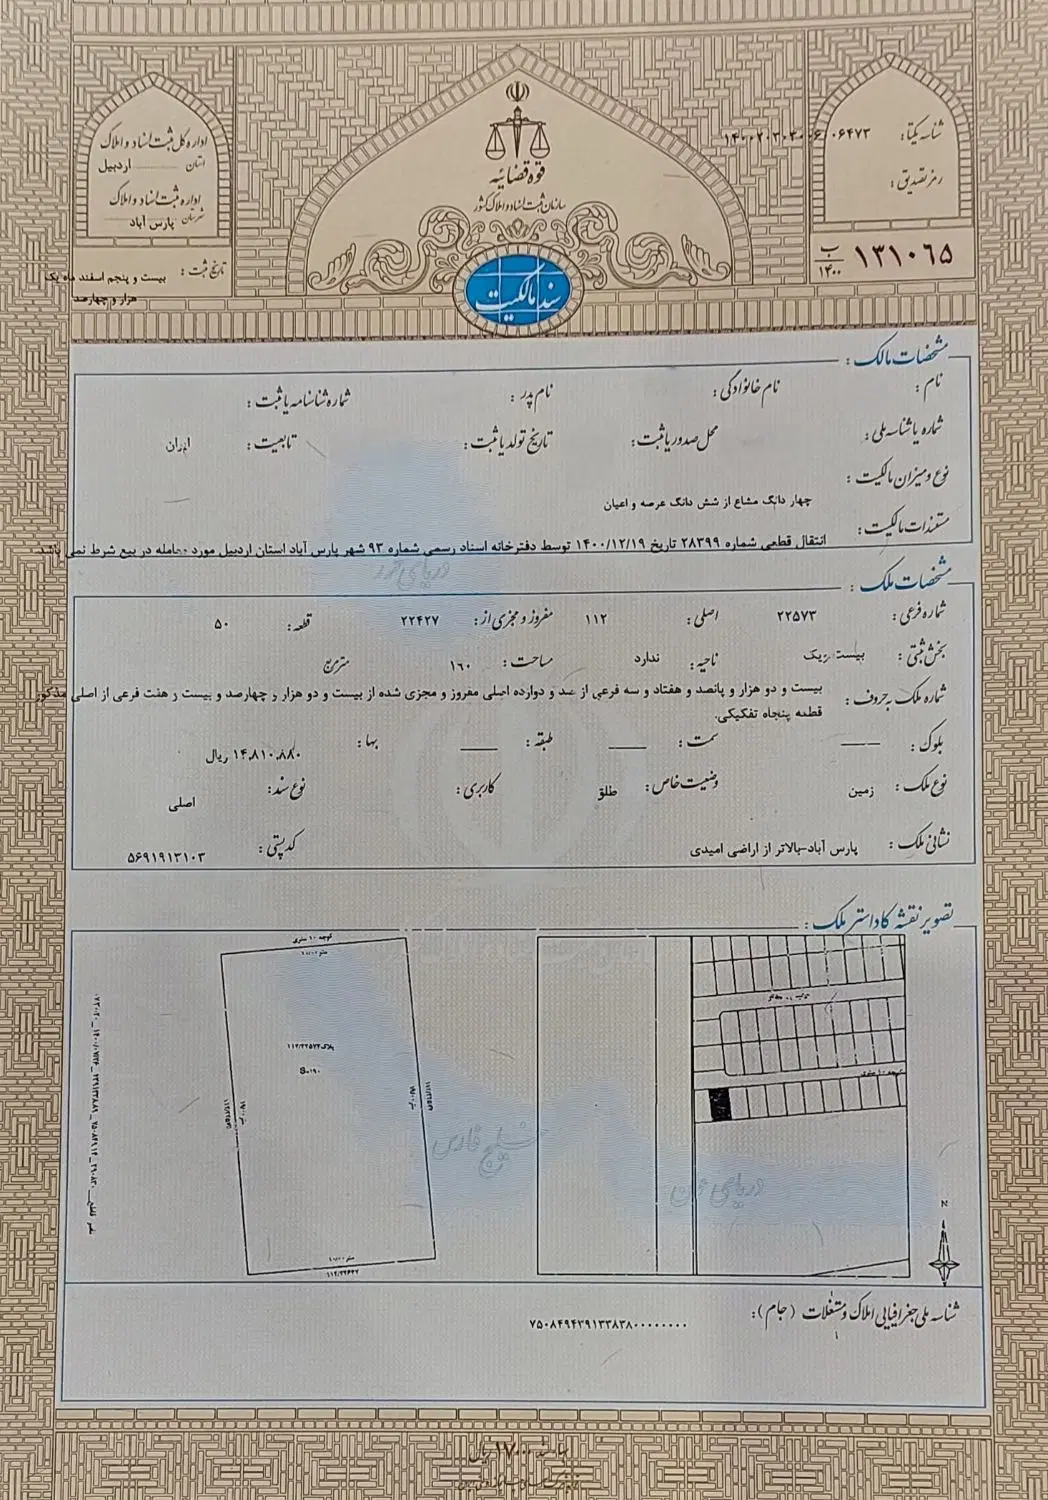 قوه قضائیه
سازمان ثبت اسناد و املاک کشور
سند مالکیت
شناسه یکتا:
رمز تصدیق:
۱۳۱۰۶۵ ب ۱۴۰۰
اداره کل ثبت اسناد و املاک
استان اردبیل
اداره ثبت اسناد و املاک
شهرستان پارس آباد
تاریخ ثبت: بیست و پنجم اسفند ماه یک
هزار و چهارصد
مشخصات مالک:
نام: نام خانوادگی: نام پدر: شماره شناسنامه یا ثبت:
شماره یا شناسه ملی: محل صدور یا ثبت: تاریخ تولد یا ثبت: تابعیت: ایران
نوع و میزان مالکیت:
چهار دانگ مشاع از شش دانگ عرصه و اعیان
مستندات مالکیت:
انتقال قطعی شماره ۲۸۳۹۹ تاریخ ۱۴۰۰/۱۲/۱۹ توسط دفترخانه اسناد رسمی شماره ۹۳ شهر پارس آباد استان اردبیل مورد معامله در بیع شرط نمی باشد
مشخصات ملک:
شماره فرعی: ۲۲۵۷۳ اصلی: ۱۱۲ مفروز و مجزی از: ۲۲۴۲۷ قطعه: ۵۰
بخش ثبتی: بیست ویک ناحیه: ندارد مساحت: ۱۶۰ مترمربع
شماره ملک به حروف: بیست و دو هزار و پانصد و هفتاد و سه فرعی از صد و دوازده اصلی مفروز و مجزی شده از بیست و دو هزار و چهارصد و بیست و هفت فرعی از اصلی مذکور
قطعه پنجاه تفکیکی.
بلوک: سمت: طبقه: بها: ۱۴,۸۱۰,۸۸۰ ریال
نوع ملک: زمین وضعیت خاص: طلق کاربری: نوع سند: اصلی
نشانی ملک: پارس آباد-بالاتر از اراضی امیدی کدپستی: ۵۶۹۱۹۱۳۱۰۳
تصویر نقشه کاداستر ملک:
کوچه ۱۰ متری
کوچه ۱۰ متری
خلیج فارس
N
شناسه ملی جغرافیایی املاک و مستغلات (جام):